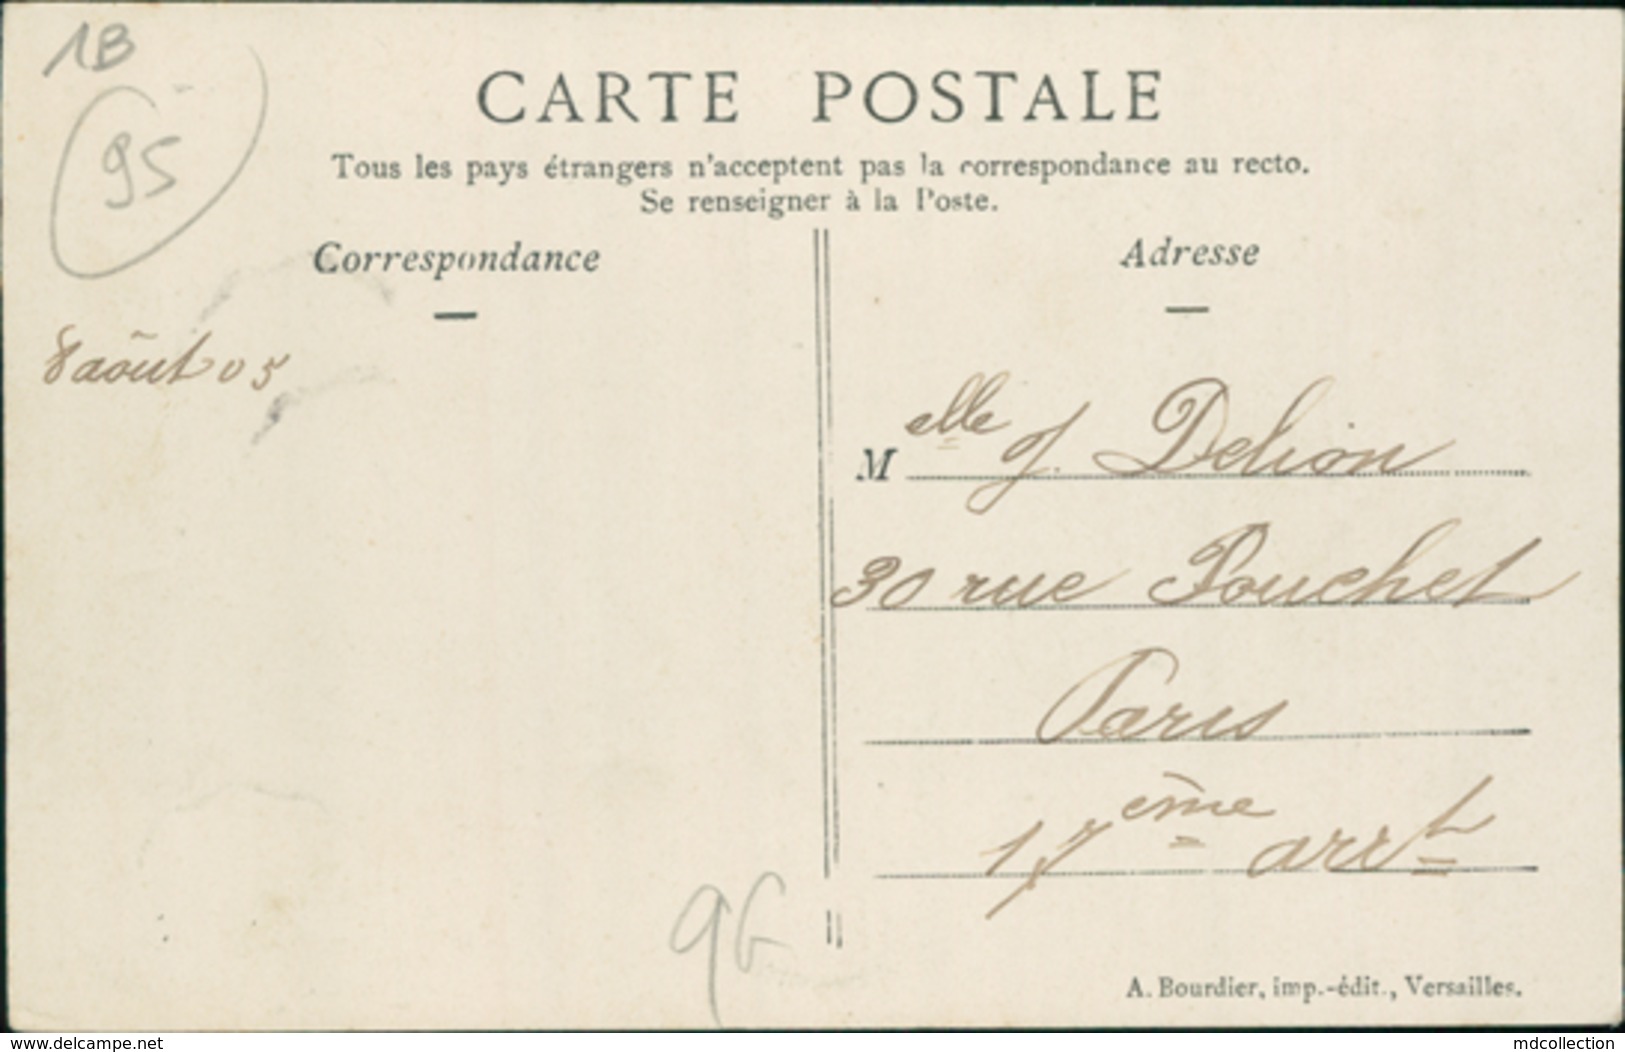 1B
95
CARTE POSTALE
Tous les pays étrangers n'acceptent pas la correspondance au recto.
Se renseigner à la Poste.
Correspondance
8 aôut 05
Adresse
Melle J. Delion
30 rue Pouchet
Paris
17ème arrt
96
A. Bourdier, imp.-édit., Versailles.
www.delcampe.net
mdcollection